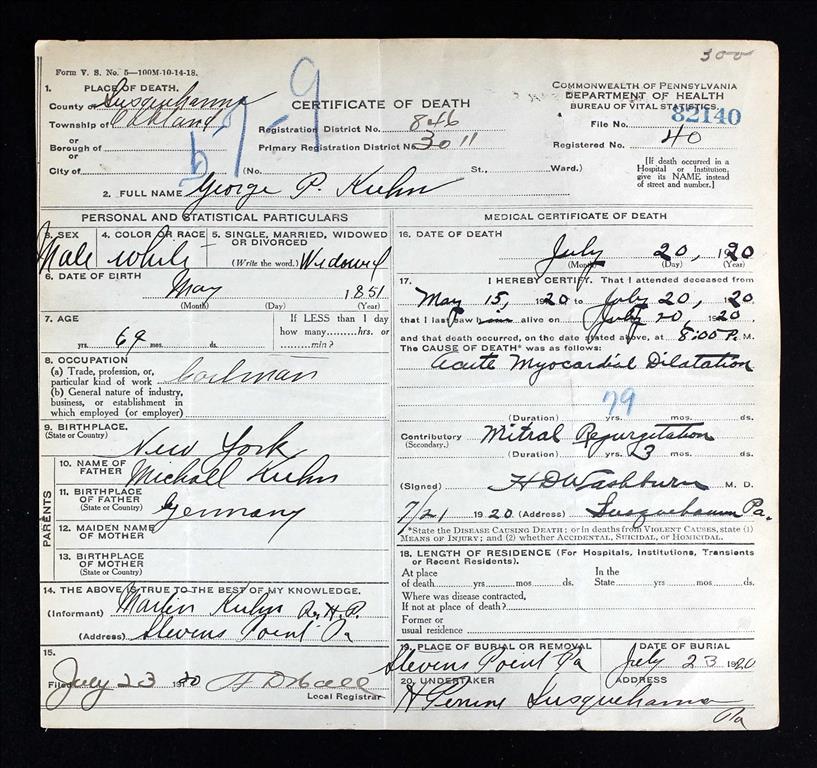 300
Form V. S. No. 5—100M-10-14-18.
1. PLACE OF DEATH.
County of Susquehanna
Township of Oakland
or
Borough of
or
City of
5-7-9
CERTIFICATE OF DEATH
Registration District No. 846
Primary Registration District No. 3011
(No. St., Ward.)
COMMONWEALTH OF PENNSYLVANIA
DEPARTMENT OF HEALTH
BUREAU OF VITAL STATISTICS.
File No. 82140
Registered No. 40
[If death occurred in a
Hospital or Institution,
give its NAME instead
of street and number.]
2. FULL NAME George P. Kuhn
PERSONAL AND STATISTICAL PARTICULARS
3. SEX
Male
4. COLOR OR RACE
White
5. SINGLE, MARRIED, WIDOWED
OR DIVORCED
(Write the word.) Widowed
6. DATE OF BIRTH
May 1851
(Month) (Day) (Year)
7. AGE
69 yrs. mos. ds.
If LESS than 1 day
how many hrs. or
min?
8. OCCUPATION
(a) Trade, profession, or,
particular kind of work
(b) General nature of industry,
business, or establishment in
which employed (or employer)
9. BIRTHPLACE.
(State or Country)
New York
PARENTS
10. NAME OF
FATHER
Michael Kuhn
11. BIRTHPLACE
OF FATHER
(State or Country)
Germany
12. MAIDEN NAME
OF MOTHER
13. BIRTHPLACE
OF MOTHER
(State or Country)
14. THE ABOVE IS TRUE TO THE BEST OF MY KNOWLEDGE.
(Informant) Martin Kuhn
(Address) Stevens Point Pa
15.
Filed July 23 1920
Local Registrar
MEDICAL CERTIFICATE OF DEATH
16. DATE OF DEATH
July 20, 1920
(Month) (Day) (Year)
17. I HEREBY CERTIFY, That I attended deceased from
May 15, 1920 to July 20, 1920.
that I last saw him alive on July 20 1920.
and that death occurred, on the date stated above, at 8:05 P. M.
The CAUSE OF DEATH* was as follows:
Acute Myocardial Dilatation
79
(Duration) yrs. mos. ds.
Contributory Mitral Regurgetation
(Secondary.)
(Duration) yrs. 3 mos. ds.
(Signed) H D Washburn M. D.
7/21 1920 (Address) Susquehanna Pa.
*State the DISEASE CAUSING DEATH; or in deaths from VIOLENT CAUSES, state (1)
MEANS OF INJURY; and (2) whether ACCIDENTAL, SUICIDAL, or HOMICIDAL.
18. LENGTH OF RESIDENCE (For Hospitals, Institutions, Transients
or Recent Residents).
At place
of death yrs. mos. ds.
In the
State yrs. mos. ds.
Where was disease contracted,
If not at place of death?
Former or
usual residence
19. PLACE OF BURIAL OR REMOVAL
Stevens Point Pa
DATE OF BURIAL
July 23 1920
20. UNDERTAKER
ADDRESS
Susquehanna
Pa